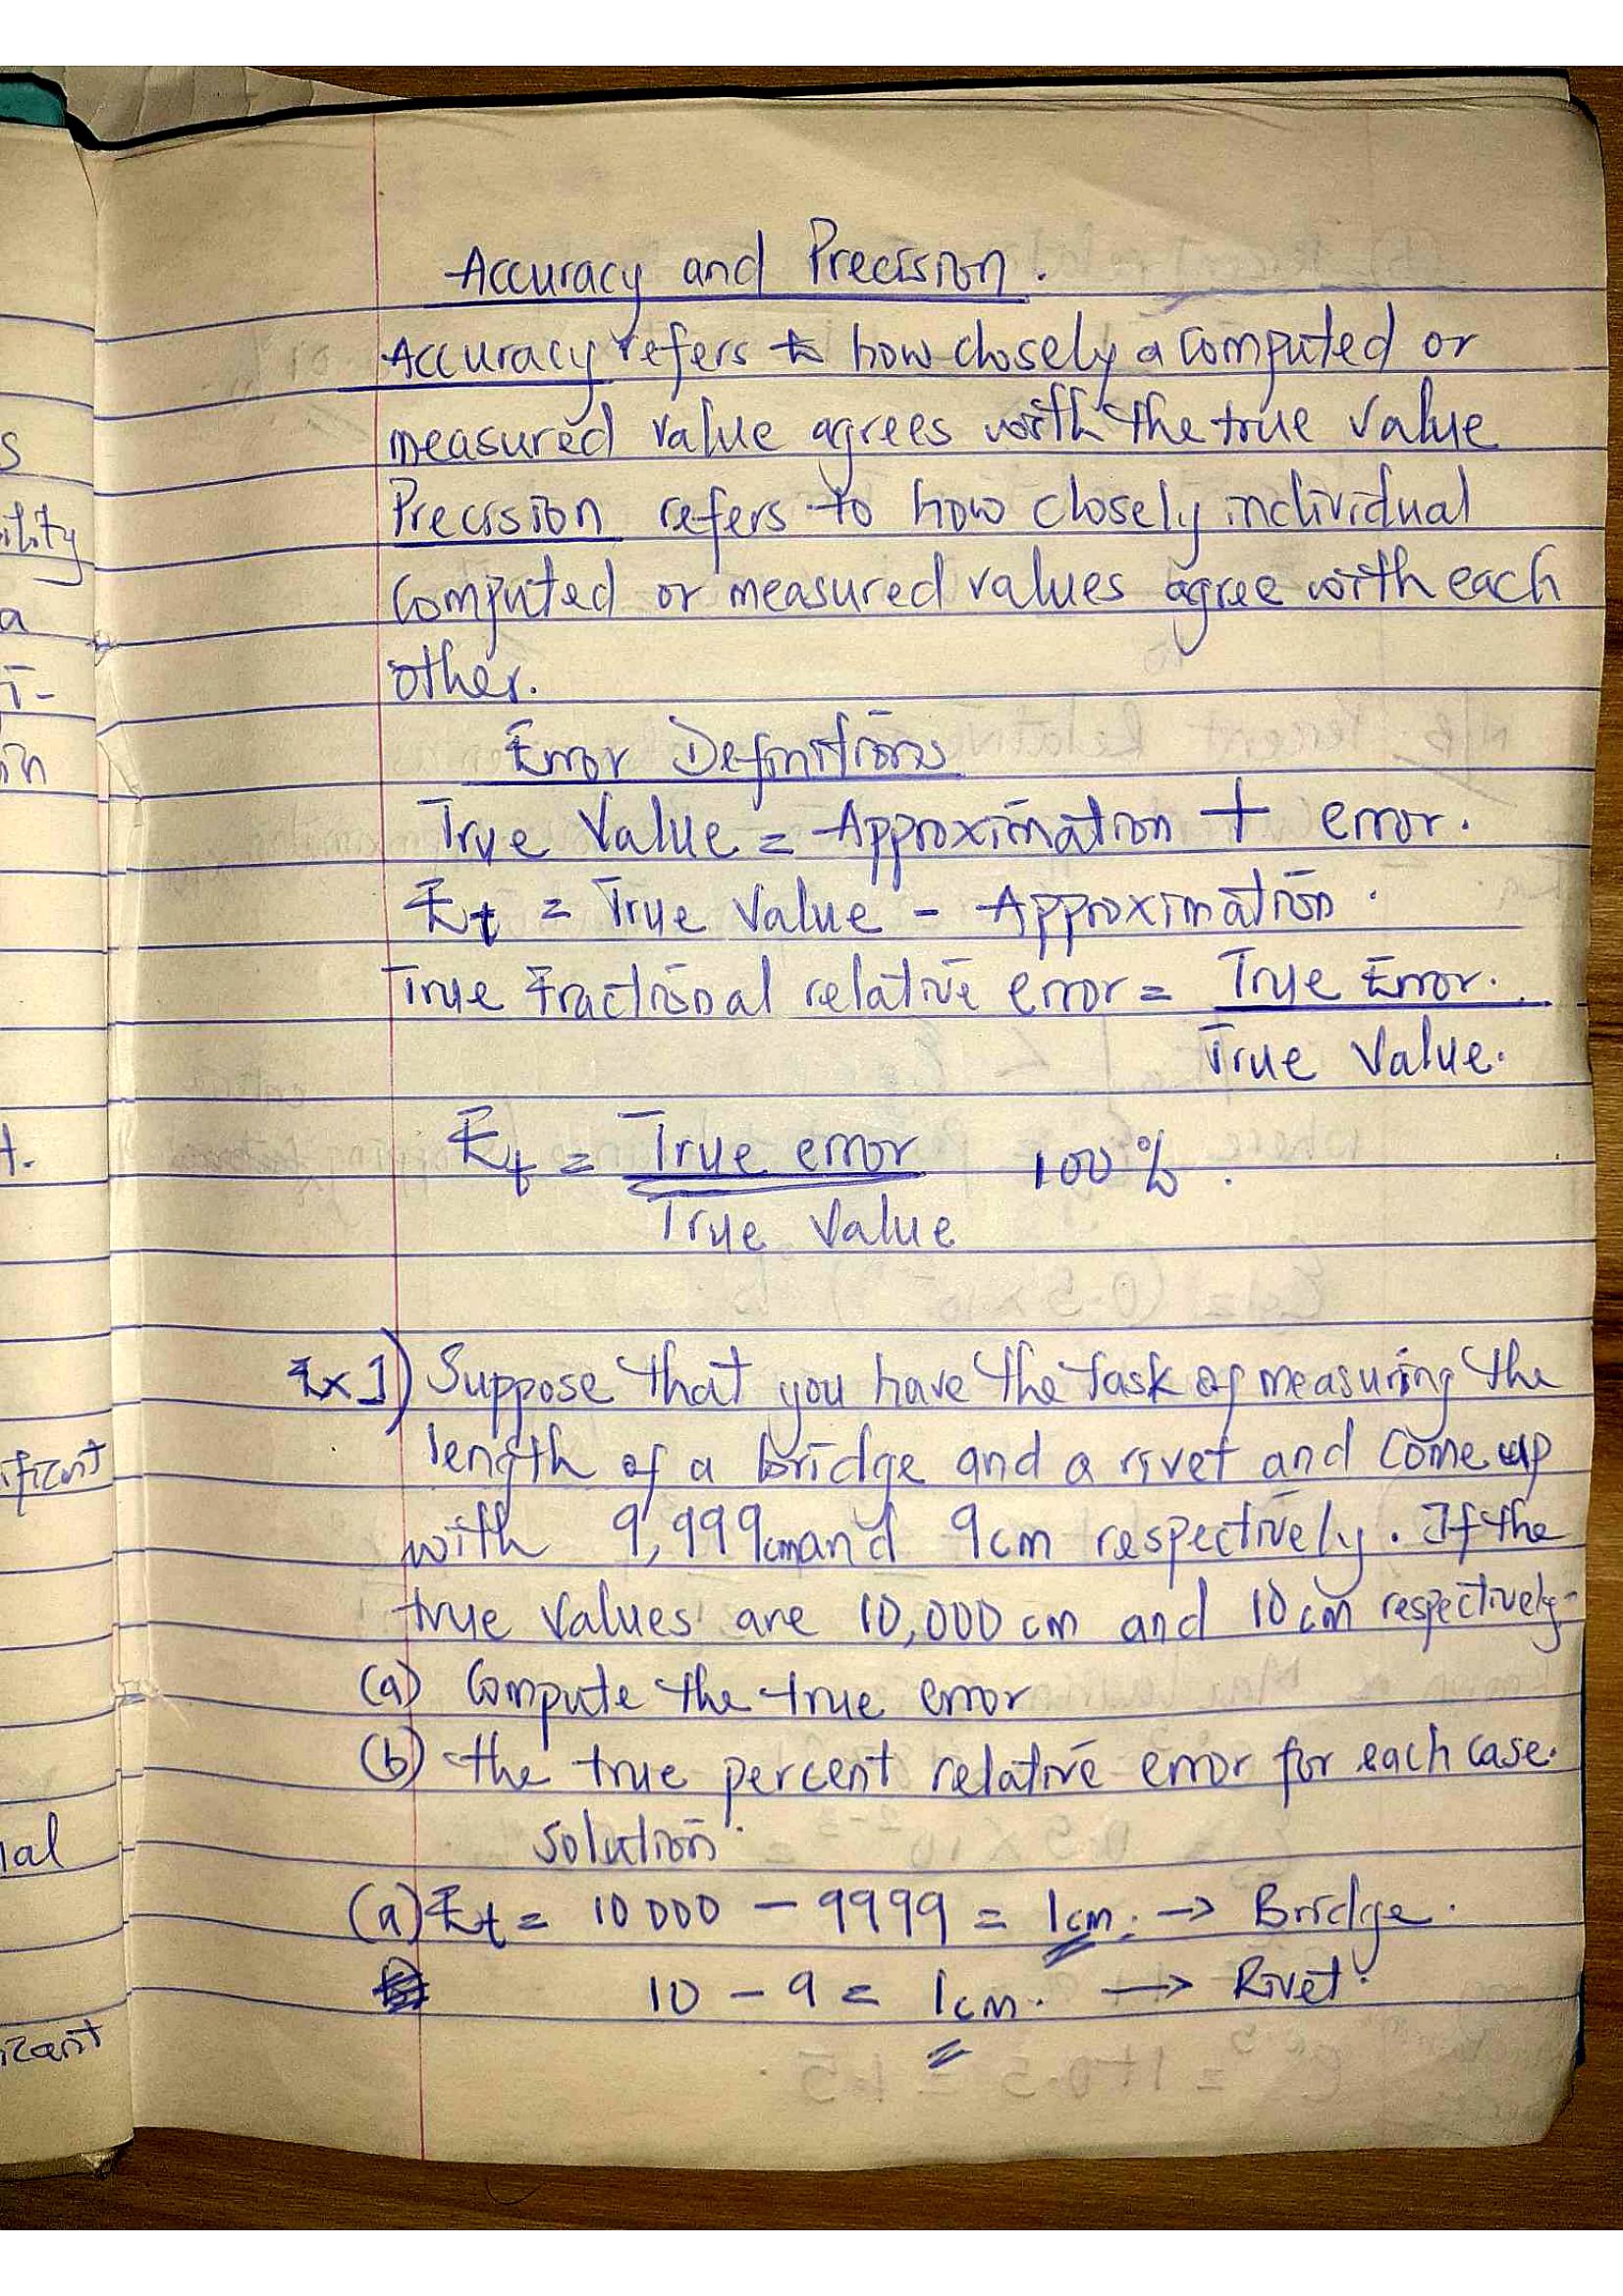 Accuracy and Precision.
Accuracy refers to how closely a computed or
measured value agrees with the true value
Precision refers to how closely individual
Computed or measured values agree with each
other.
Error Definitions
True Value = Approximation + error.
Et = True Value - Approximation.
True Fractional relative error = True Error.
True Value.
Et = True error 100%.
True Value
Ex 1) Suppose that you have the task of measuring the
length of a bridge and a rivet and come up
with 9,999cm and 9cm respectively. If the
true values are 10,000 cm and 10cm respectively-
(a) Compute the true error
(b) the true percent relative error for each case.
Solution.
(a) Et = 10000 - 9999 = 1cm. → Bridge.
10 - 9 = 1cm. → Rivet.
s
ility
a
t.
ificant
ial